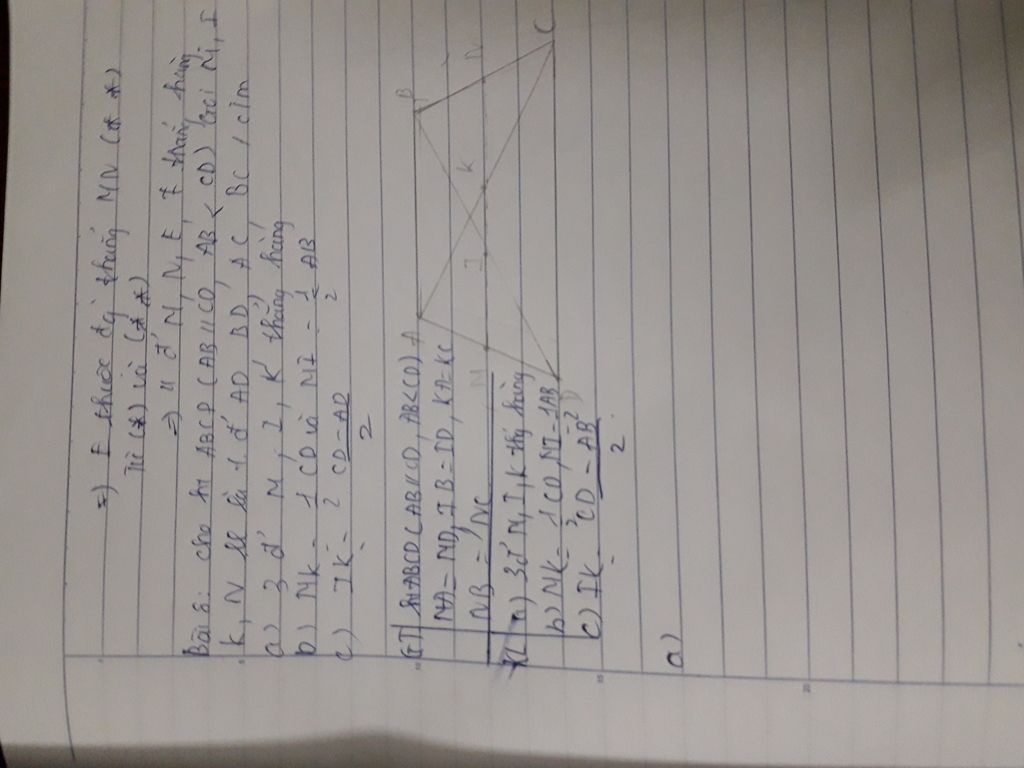 =) E thuộc đg thẳng MN (**)
Từ (*) và (**)
=) 4 đ' M, N, E, F thẳng hàng
Bài 8: cho ht ABCD (AB//CD, AB < CD) Gọi M, I
K, N là t đ' AD BD, AC BC, c/m
a) 3 đ' M, I, K thẳng hàng
b) MK = 1/2 CD và MI = 1/2 AB
c) IK = CD - AB / 2
GT ht ABCD (AB//CD, AB<CD)
MA = MD, IB = ID, KA = KC
NB = NC
KL a) 3 đ' M, I, K thg hàng
b) MK = 1/2 CD, MI = 1/2 AB
c) IK = CD - AB / 2
A B
M I K N
D C
a)